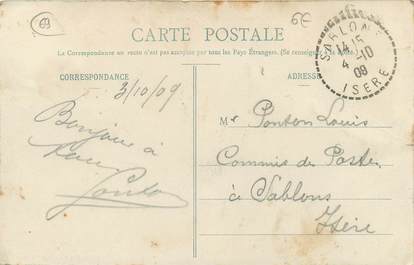 69
6E
CARTE POSTALE
La Correspondance au recto n'est pas acceptée par tous les Pays Étrangers. (Se renseigner à la
CORRESPONDANCE
ADRESSE
SABLONS
14 15
4 -10
09
ISERE
3/10/09
Bonjour à
Mr Ponton Louis
Commis des Postes
à Sablons
Isère